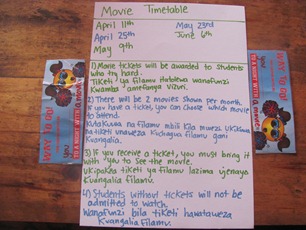 Movie Timetable
April 11th May 23rd
April 25th June 6th
May 9th
1) Movie tickets will be awarded to students
who try hard.
Tiketi ya filamu itatolewa wanafunzi
Kwamba
vizuri.
2) There will be 2 movies shown per month.
If you have a ticket, you can choose which movie
to attend.
Kutakuwa na filamu mbili kila mwezi. Ukikuwa
na tiketi unaweza Kuchagua filamu gani
Kuangalia.
3) If you receive a ticket, you must bring it
with you to see the movie.
Ukipokea tiketi ya filamu lazima
Kuangalia filamu.
4) Students without tickets will not be
admitted to watch.
Wanafunzi bila tiketi hawataweza
Kuangalia filamu.
WAY TO GO!